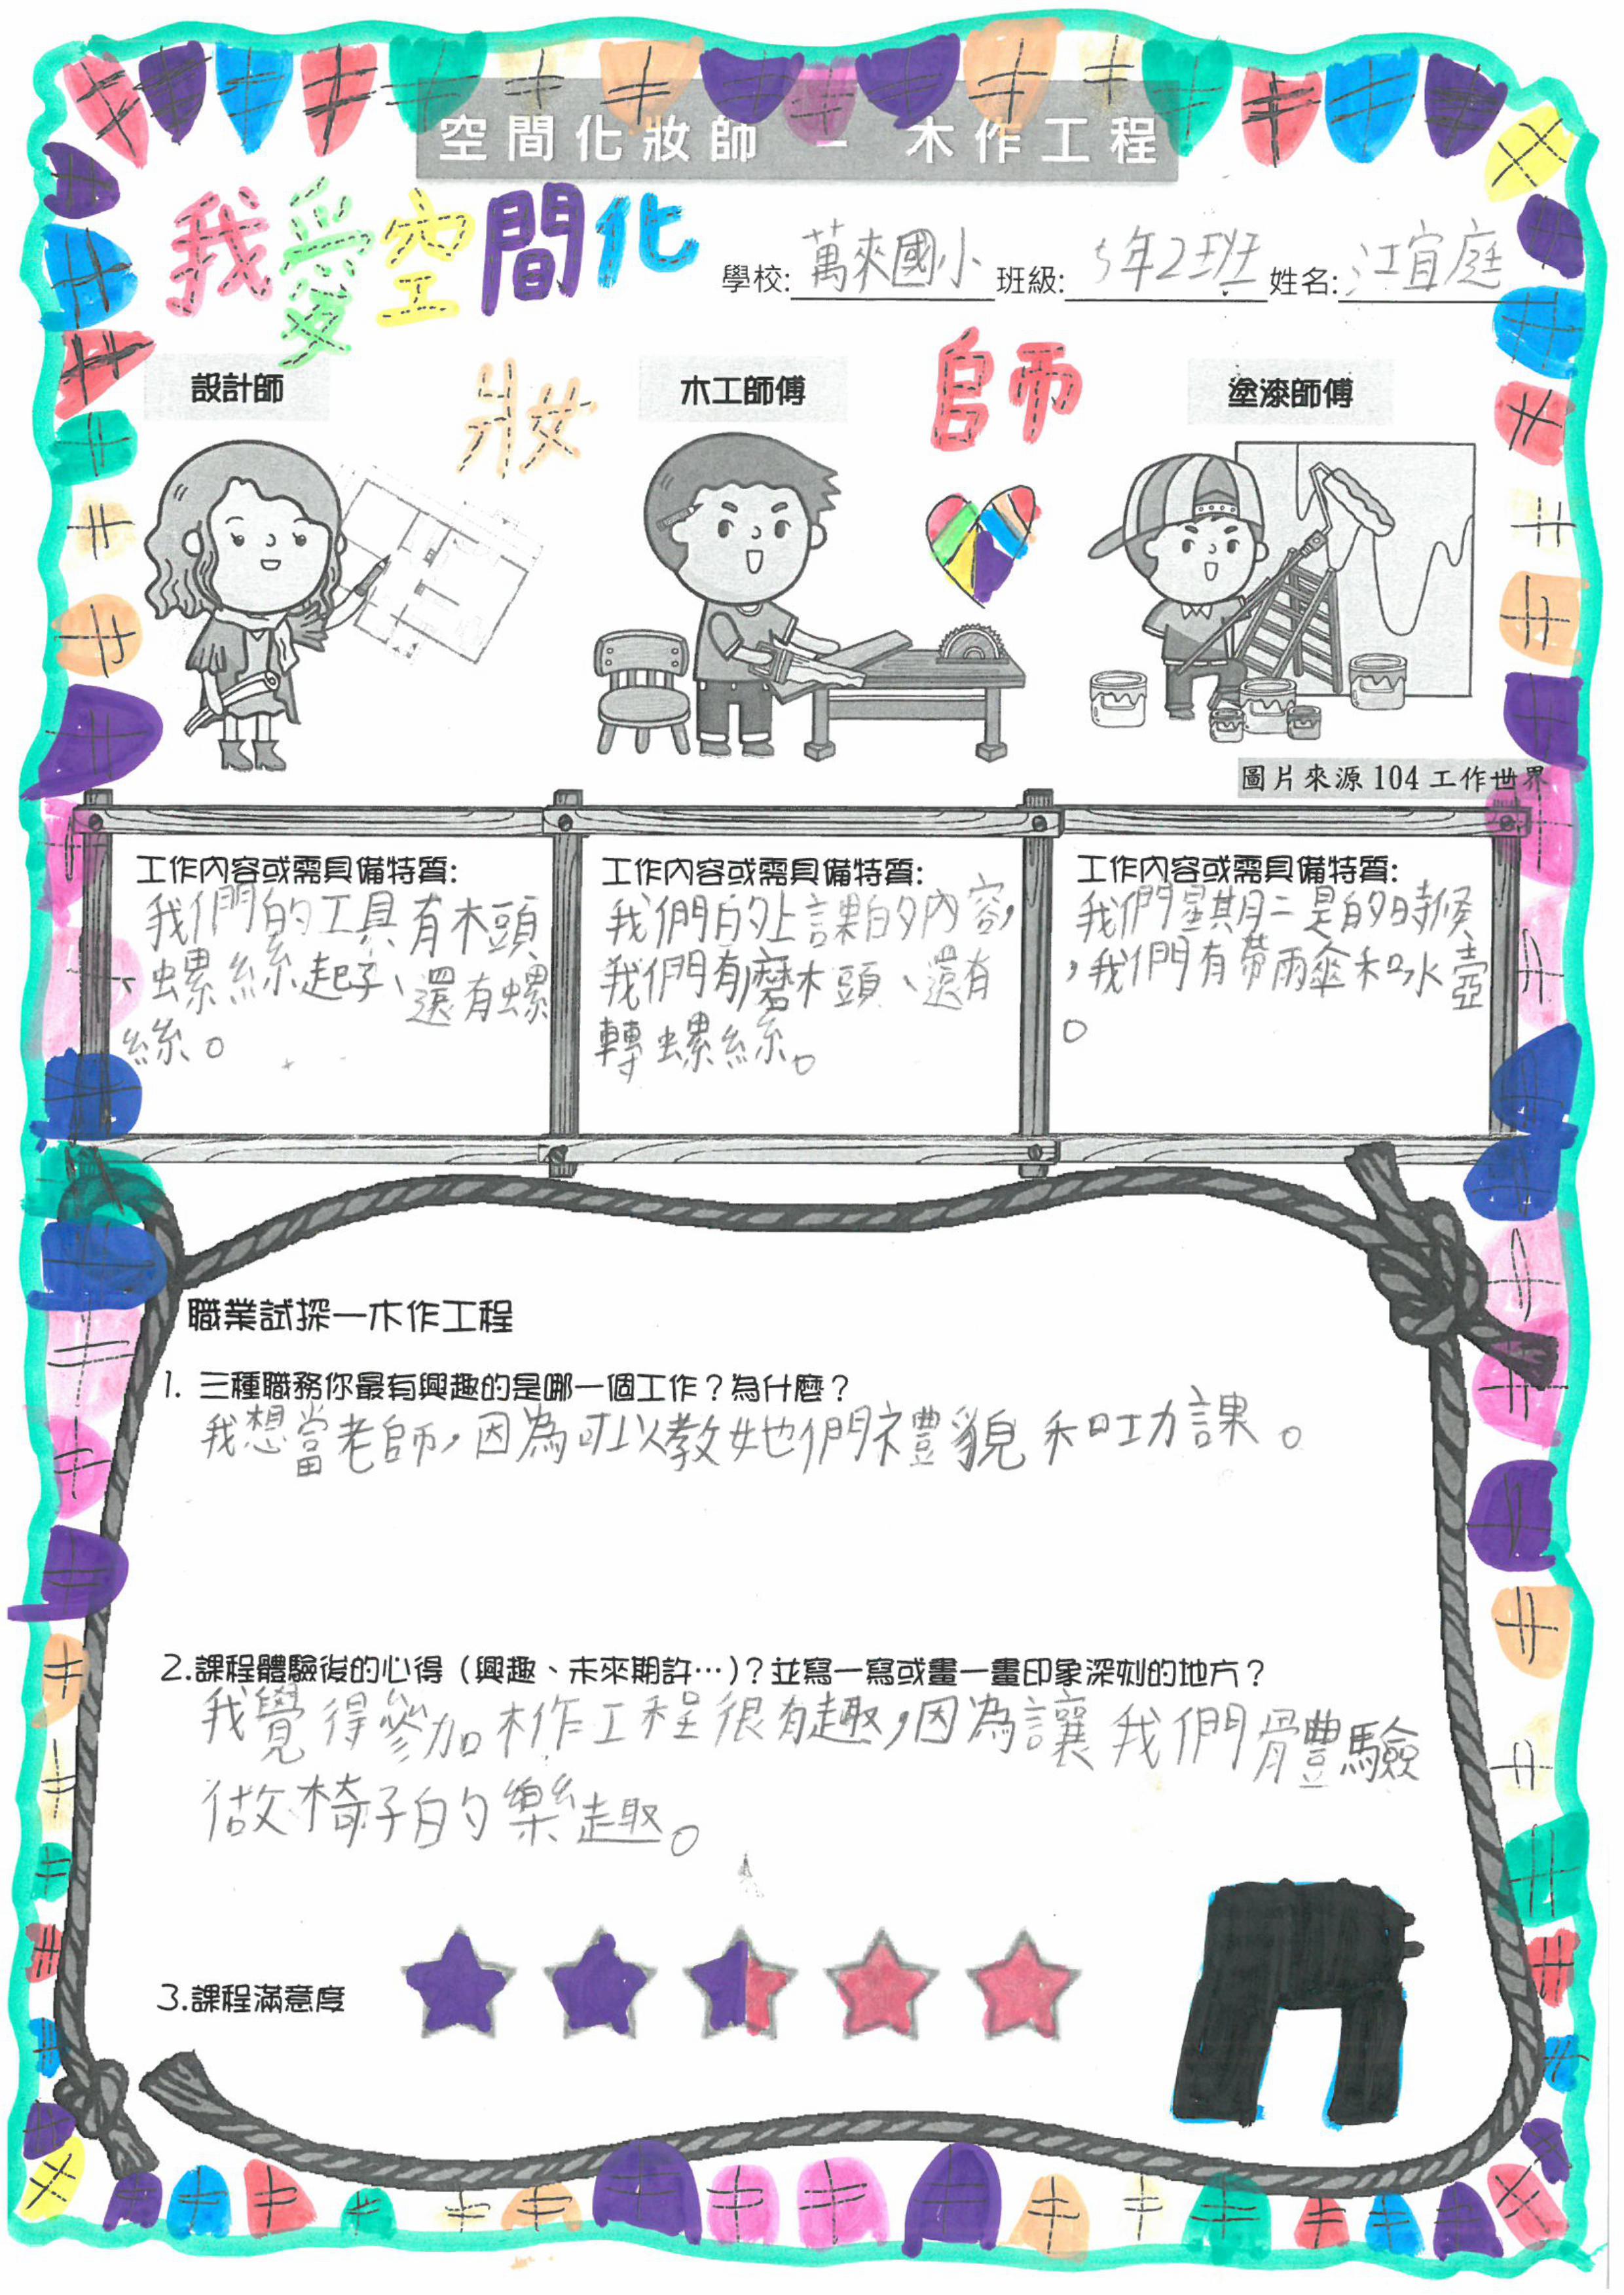 空間化妝師 - 木作工程
我愛空間化
學校: 萬來國小 班級: 5年2班 姓名: 江宜庭
妝
師
設計師
木工師傅
塗漆師傅
圖片來源 104 工作世界
工作內容或需具備特質:
我們的工具有木頭
、螺絲起子、還有螺
絲。
工作內容或需具備特質:
我們的上課的內容,
我們有磨木頭、還有
轉螺絲。
工作內容或需具備特質:
我們星期二是的時候
,我們有帶雨傘和水壺
。
職業試探—木作工程
1. 三種職務你最有興趣的是哪一個工作？為什麼？
我想當老師,因為可以教她們禮貌和功課。
2.課程體驗後的心得（興趣、未來期許…）？並寫一寫或畫一畫印象深刻的地方？
我覺得參加木作工程很有趣,因為讓我們體驗
做椅子的樂趣。
3.課程滿意度